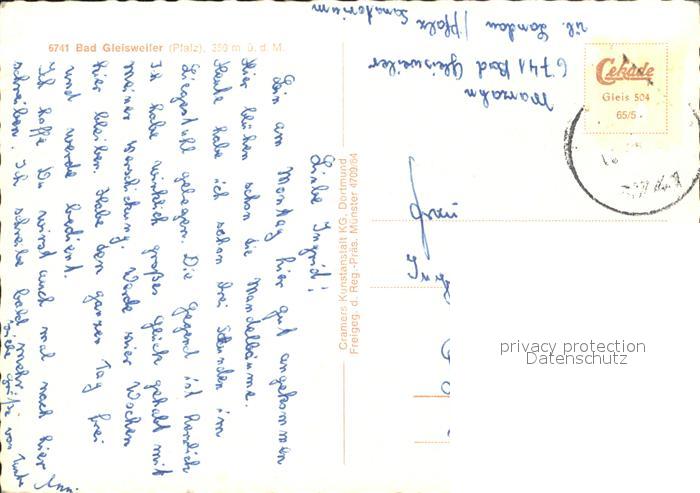 6741 Bad Gleisweiler (Pfalz), 350 m ü. d. M.
Liebe Ingrid!
Bin am Montag hier gut angekommen
Hier blühen schon die Mandelbäume.
Heute habe ich schon drei Stunden im
Liegestuhl gelegen. Die Gegend ist herrlich
Ich habe wirklich großes Glück gehabt mit
meiner Verschickung. Werde vier Wochen
hier bleiben. Habe den ganzen Tag frei
und werde bedient.
Ich hoffe Du wirst auch mal nach hier
schreiben. Ich schreibe bald mehr.
Viele Grüße von Tante
Änn.
Cramers Kunstanstalt KG, Dortmund
Freigeg. d. Reg.-Präs. Münster 4709/64
Marzahn
6741 Bad Gleisweiler
üb. Landau /Pfalz
Sanatorium
Cekade
Gleis 504
65/5
privacy protection
Datenschutz